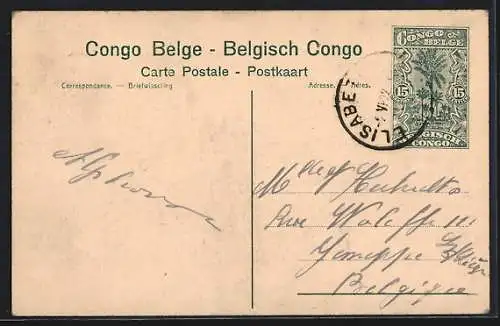 Congo Belge - Belgisch Congo
Carte Postale - Postkaart
Correspondance. — Briefwisseling Adresse. — Adres.
CONGO BELGE
15 15
BELGISCH CONGO
ELISABET
Alphonse
Rue
Jemeppe s/ Liége
Belgique